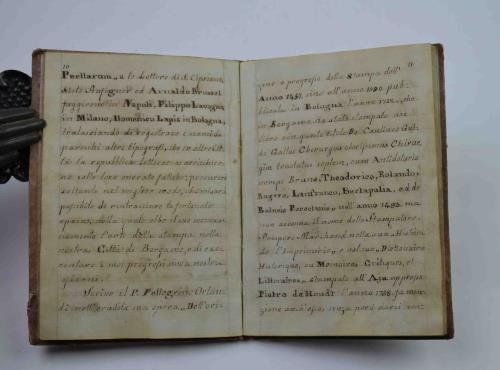 10
Puellarum, e le Lettere di S. Cipriano,
stato Assignor ed Arnaldo Brussel
Napoli, Filippo Lavagna
in Milano, Domenico Lapis in Bologna,
tralasciando di registrare i nomi de
parecchi altri tipografi, che in altre Cit-
tà la repubblica letteraria arricchiro-
no colle loro onorate fatiche; procurerò
soltanto nel miglior modo, che mi sarà
possibile di rintracciare la
epoca, della quale ebbe il suo incomin-
ciamento l'arte della stampa nella
nostra Città di Bergamo, e di rac-
contare i suoi progressi sino a nostri
giorni.
Scrive il P. Pellegrino Orlan-
di nell'erudita sua opera, Dell'ori-
11
gine e progressi della Stampa dall'
Anno 1457. sino all'anno 1500. pub-
blicata in Bologna l'anno 1722., che
in Bergamo sia stato stampato un
libro con questo titolo D. Guidonis
de Gallia Chirurgia
gia tractatus septem, cum Antidotario
Bruno, Theodorico, Rolando,
Rogero, Lanfranco, Bertapalia, ed de
Balneis Porectanis, nell'anno 1498. ma
non accenna il nome dello Stampatore.
Prospero Marchand nella sua, Histoire
de l'Imprimerie, e nel suo, Dictionaire
Historique, ou Memoires Critiques, et
Litteraires, stampato all'Aja appresso
Pietro de Hondt l'anno 1758. fa men-
zione anch'esso, senza però darci